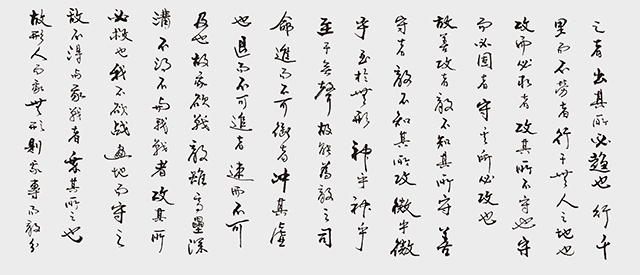 之者出其所必趨也行千
里而不勞者行于無人之地也
攻而必取者攻其所不守也守
而必固者守其所必攻也
故善攻者敵不知其所守善
守者敵不知其所攻微乎微
乎至於無形神乎神乎
至于無聲故能為敵之司
命進而不可禦者沖其虛
也退而不可追者速而不可
及也故我欲戰敵雖高壘深
溝不得不與我戰者攻其所
必救也我不欲戰畫地而守之
敵不得與我戰者乖其所之也
故形人而我無形則我專而敵分